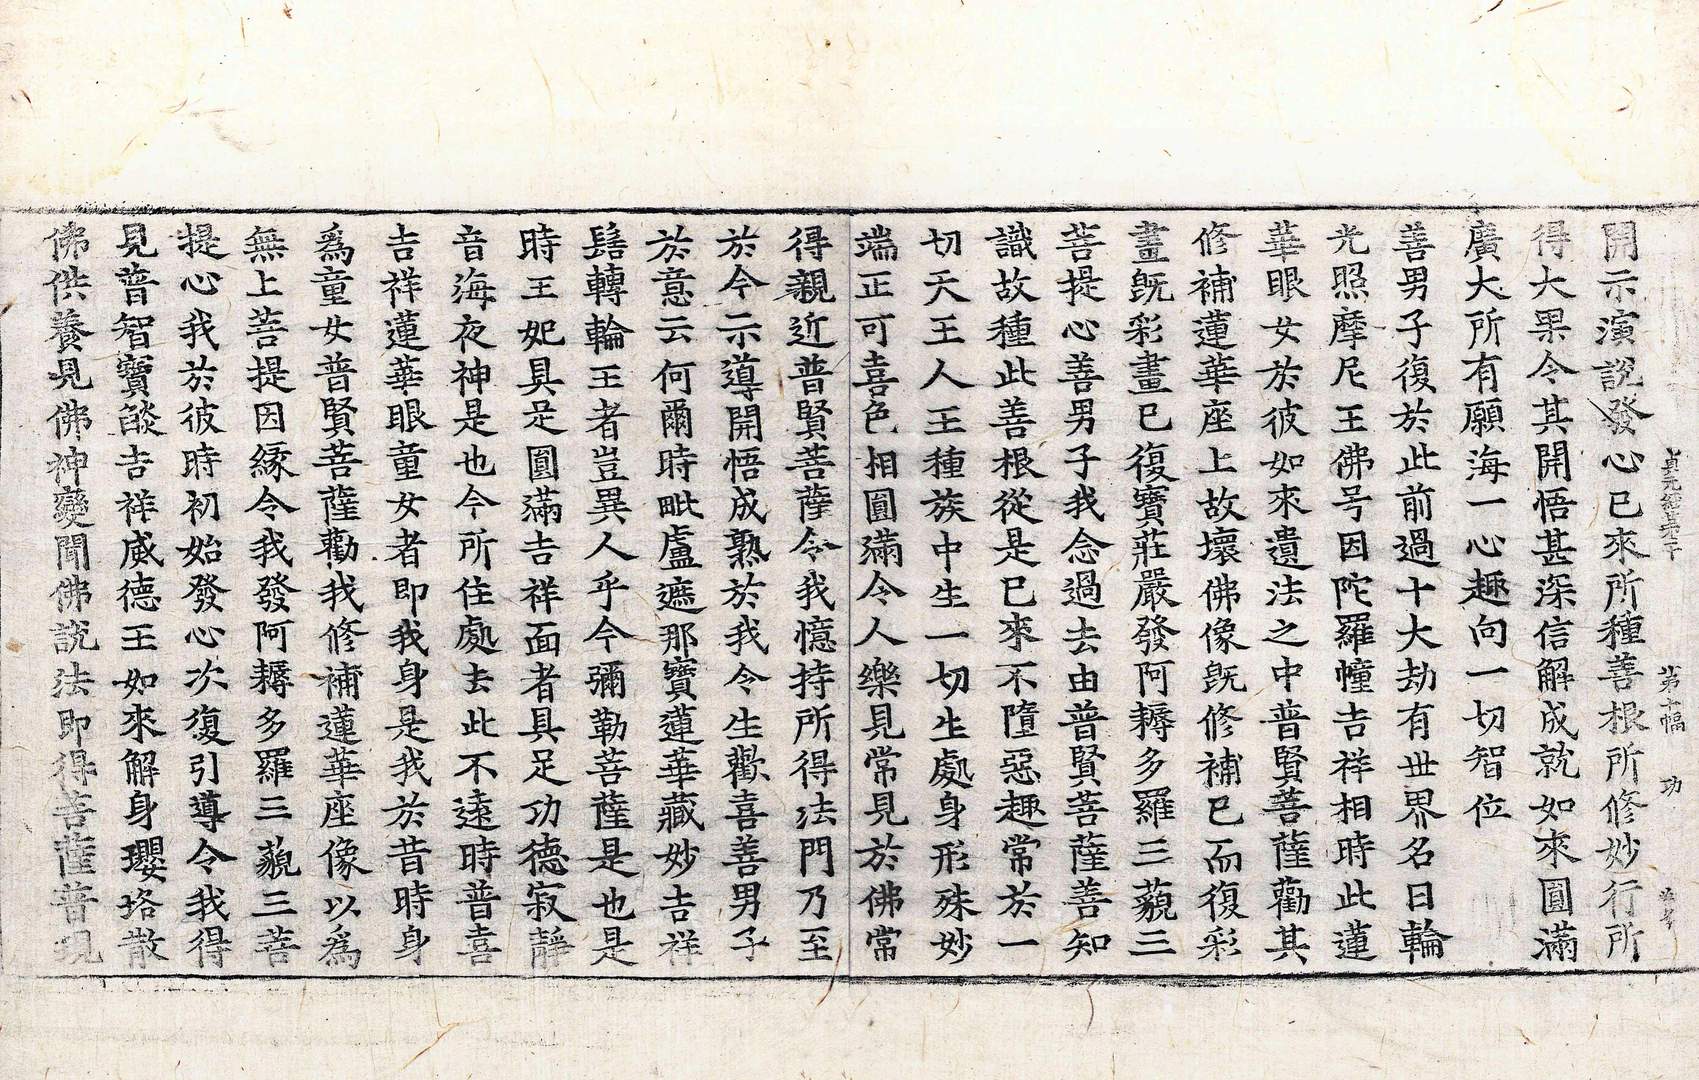 開示演說發心已來所種善根所修妙行所
得大果令其開悟甚深信解成就如來圓滿
廣大所有願海一心趣向一切智位
善男子復於此前過十大劫有世界名日輪
光照摩尼王佛号因陀羅幢吉祥相時此蓮
華眼女於彼如來遺法之中普賢菩薩勸其
修補蓮華座上故壞佛像旣修補已而復彩
畫旣彩畫已復寶莊嚴發阿耨多羅三藐三
菩提心善男子我念過去由普賢菩薩善知
識故種此善根從是已來不墮惡趣常於一
切天王人王種族中生一切生處身形殊妙
端正可喜色相圓滿令人樂見常見於佛常
得親近普賢菩薩令我憶持所得法門乃至
於今示導開悟成熟於我令生歡喜善男子
於意云何爾時毗盧遮那寶蓮華藏妙吉祥
髻轉輪王者豈異人乎今彌勒菩薩是也是
時王妃具足圓滿吉祥面者具足功德寂靜
音海夜神是也今所住處去此不遠時普喜
吉祥蓮華眼童女者即我身是我於昔時身
爲童女普賢菩薩勸我修補蓮華座像以爲
無上菩提因緣令我發阿耨多羅三藐三菩
提心我於彼時初始發心次復引導令我得
見普智寶燄吉祥威德王如來解身瓔珞散
佛供養見佛神變聞佛說法即得菩薩普現
第十幅 功